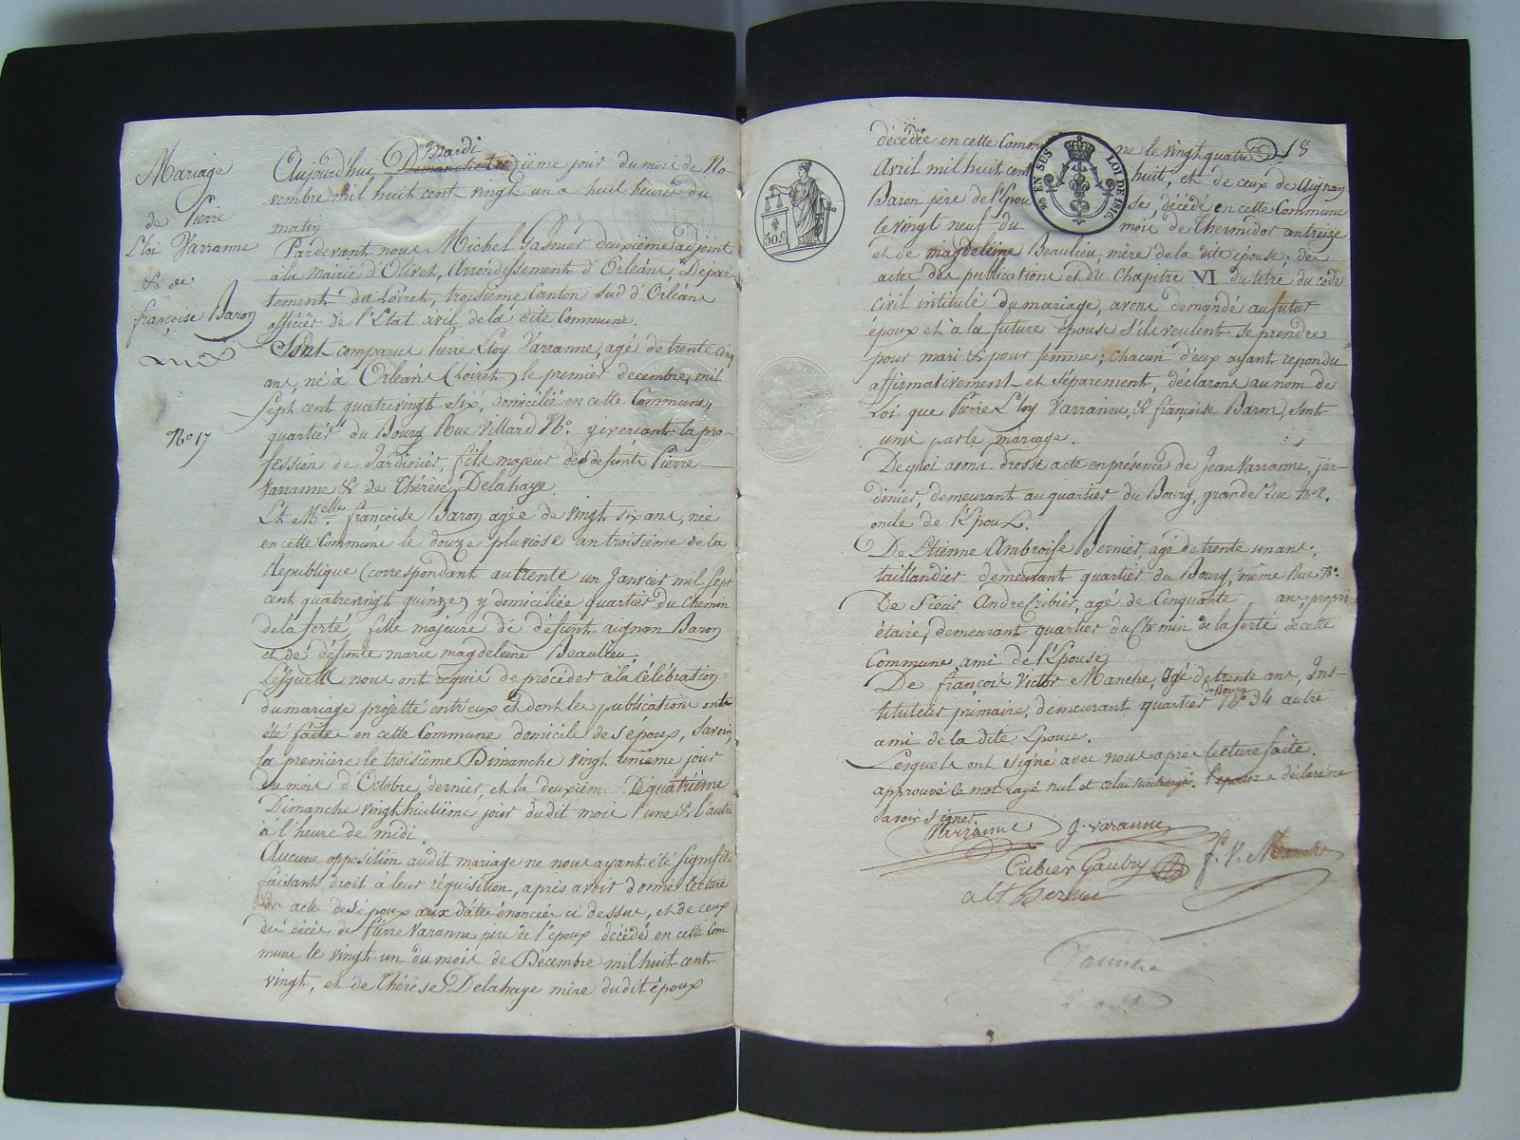 Mariage
de Pierre
Eloi Varanne
& de
françoise Baron
N° 17
Mardi
Aujourdhui Dimanche treizième jour du mois de No-
vembre mil huit cent vingt un a huit heures du
matin
Pardevant nous Michel Gasnier deuxième adjoint
à la mairie d'Olivet, Arrondissement d'Orléans Dépar-
tement du Loiret, troisième Canton sud d'Orléans
officier de l'Etat civil de la dite Commune.
Sont comparus Pierre Eloy Varanne, agé de trente cinq
ans, né à Orléans (Loiret) le premier decembre, mil
sept cent quatrevingt six, domicilié en cette Commune,
quartier du Bourg Rue Villard N°. y exercant la pro-
fession de Jardinier, fils majeur des defunts Pierre
Varanne & de Thérèse Delahaye.
Et Melle. françoise Baron agée de vingt six ans, née
en cette Commune le douze pluviose an troisième de la
République (correspondant au trente un Janvier mil sept
cent quatrevingt quinze) y domiciliée quartier du Chemin
de la ferté, fille majeure de défunt aignan Baron
et de défunte marie magdeleine Beaulieu.
Lesquels nous ont requis de procéder à la Célébration
du mariage projetté entr'eux et dont les publications ont
été faites en cette Commune domicile des époux, Savoir,
la première le troisième Dimanche vingt unième jour
du mois d'Octobre dernier, et la deuxième le quatrième
Dimanche vingt huitième jour dudit mois l'une & l'autre
à l'heure de midi.
Aucune opposition audit mariage ne nous ayant été signifiée
faisant droit à leur réquisition, après avoir donné lecture
des acte des époux aux dates énoncées ci dessus, et de ceux
de décès de Pierre Varanne père de l'époux décédé en cette Com-
mune le vingt un du mois de Décembre mil huit cent
vingt, et de Thérèse Delahaye mère dudit époux
18
décédée en cette Com ne le vingt quatre
Avril mil huit cent huit, et de ceux de Aignan
Baron père de l'Epou se, décédé en cette Commune
le vingt neuf du mois de Thermidor an treize
et de magdeleine Beaulieu, mère de la dite épouse, des
actes des publications et du Chapitre VI du titre du code
civil intitulé du mariage, avons demandé au futur
époux et à la future épouse s'ils veulent se prendre
pour mari & pour femme; chacun d'eux ayant répondu
affirmativement et séparement, déclarons au nom de
Loi que Pierre Eloy Varanne, & françoise Baron, sont
unis par le mariage.
De quoi avons dressé acte en présence de Jean Varanne, jar-
dinier, demeurant au quartier du Bourg, grande rue N°2.
oncle de l'Epoux.
De Etienne Ambroise Bernier, agé de trente un ans,
taillandier demeurant quartier du Bourg, même Rue N°.
De Sieur André Cribier, agé de Cinquante ans, propri-
étaire, demeurant quartier du Chemin de la ferté de cette
Commune ami de l'Epouse
De françois Victor Manche, agé de trente ans, Ins-
tituteur primaire, demeurant quartier du Bourg N° 34 autre
ami de la dite Epouse.
Lesquels ont signé avec nous après lecture faite.
approuvé le mot rayé nul et celui surchargé. l'epouse a déclaré ne
savoir signer.
P Varanne J. Varanne
Cribier Gaudry F. V. Manche
50 C
EN SUS
LOI DE 1816